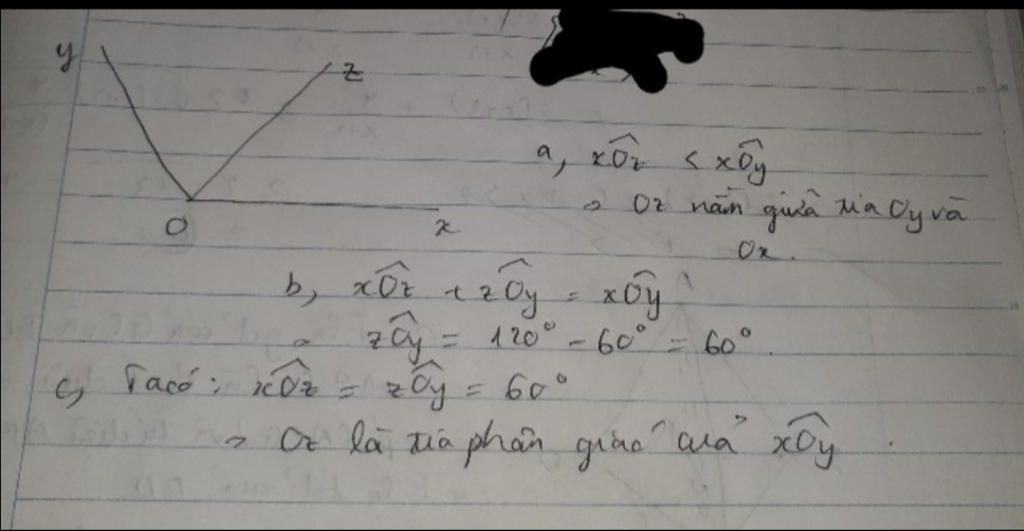 y
z
O
x
a, xÔz < xÔy
⇒ Oz nằm giữa tia Oy và
Ox.
b, xÔz + zÔy = xÔy
⇒ zÔy = 120° - 60° = 60°.
c, Ta có: xÔz = zÔy = 60°
⇒ Oz là tia phân giác của xÔy.